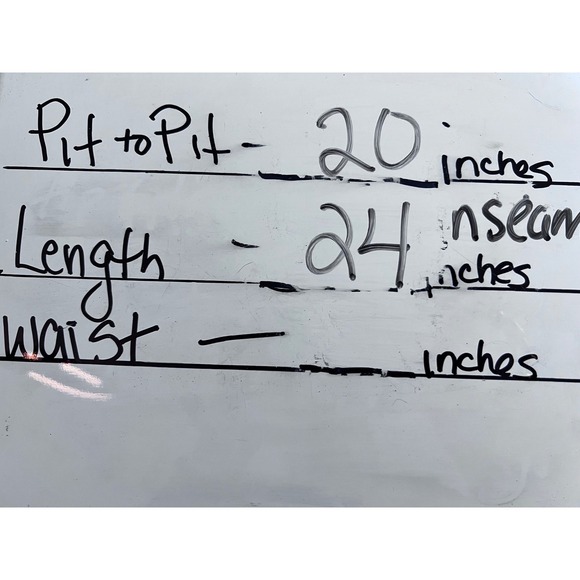 Pit to Pit - 20 inches
Length - 24 inches nseam
waist — inches